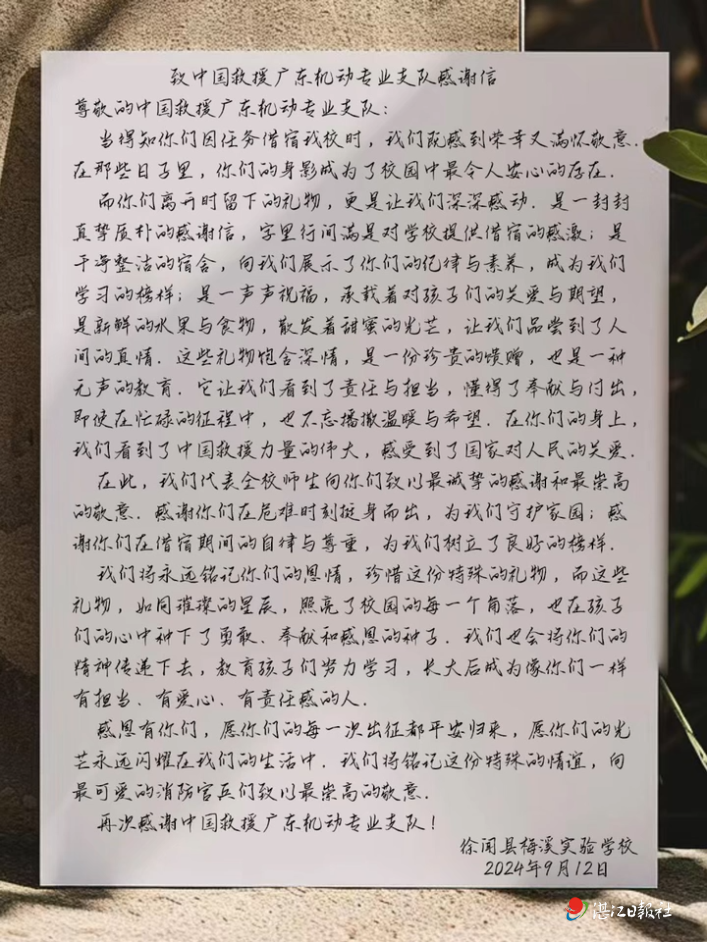 致中国救援广东机动专业支队感谢信
尊敬的中国救援广东机动专业支队:
当得知你们因任务借宿我校时，我们既感到荣幸又满怀敬意.
在那些日子里，你们的身影成为了校园中最令人安心的存在.
而你们离开时留下的礼物，更是让我们深深感动.是一封封
真挚质朴的感谢信，字里行间满是对学校提供借宿的感激；是
干净整洁的宿舍，向我们展示了你们的纪律与素养，成为我们
学习的榜样；是一声声祝福，承载着对孩子们的关爱与期望，
是新鲜的水果与食物，散发着甜蜜的光芒，让我们品尝到了人
间的真情.这些礼物饱含深情，是一份珍贵的馈赠，也是一种
无声的教育.它让我们看到了责任与担当，懂得了奉献与付出，
即使在忙碌的征程中，也不忘播撒温暖与希望.在你们的身上，
我们看到了中国救援力量的伟大，感受到了国家对人民的关爱.
在此，我们代表全校师生向你们致以最诚挚的感谢和最崇高
的敬意.感谢你们在危难时刻挺身而出，为我们守护家园；感
谢你们在借宿期间的自律与尊重，为我们树立了良好的榜样.
我们将永远铭记你们的恩情，珍惜这份特殊的礼物，而这些
礼物，如同璀璨的星辰，照亮了校园的每一个角落，也在孩子
们的心中种下了勇敢、奉献和感恩的种子.我们也会将你们的
精神传递下去，教育孩子们努力学习，长大后成为像你们一样
有担当、有爱心、有责任感的人.
感恩有你们，愿你们的每一次出征都平安归来，愿你们的光
芒永远闪耀在我们的生活中.我们将铭记这份特殊的情谊，向
最可爱的消防官兵们致以最崇高的敬意.
再次感谢中国救援广东机动专业支队！
徐闻县梅溪实验学校
2024年9月12日
湛江日报社